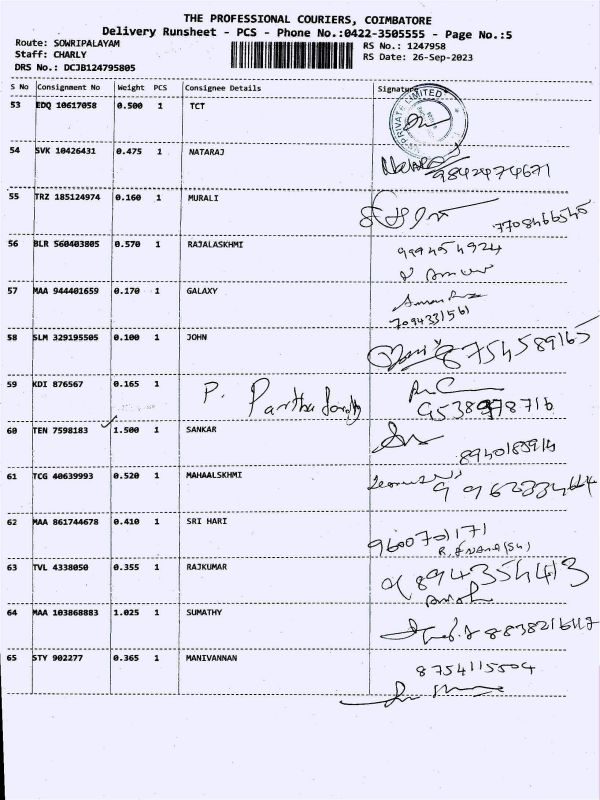 THE PROFESSIONAL COURIERS, COIMBATORE
Delivery Runsheet - PCS - Phone No.:0422-3505555 - Page No.:5
Route: SOWRIPALAYAM
Staff: CHARLY
DRS No.: DCJB124795805
RS No.: 1247958
RS Date: 26-Sep-2023
S No Consignment No Weight PCS Consignee Details Signature
PRIVATE LIMITED
53 EDQ 10617058 0.500 1 TCT
54 SVK 10426431 0.475 1 NATARAJ
Nataraj
9842474671
55 TRZ 185124974 0.160 1 MURALI
7708466545
56 BLR 560403805 0.570 1 RAJALASKHMI
9994954924
57 MAA 944401659 0.170 1 GALAXY
7094331561
58 SLM 329195505 0.100 1 JOHN
8754589165
59 KDI 876567 0.165 1 P. Partha
60 TEN 7598183 1.500 1 SANKAR
61 TCG 40639993 0.520 1 MAHAALSKHMI
62 MAA 861744678 0.410 1 SRI HARI
9600701171
63 TVL 4338050 0.355 1 RAJKUMAR
8943554413
64 MAA 103868883 1.025 1 SUMATHY
65 STY 902277 0.365 1 MANIVANNAN
8754115504